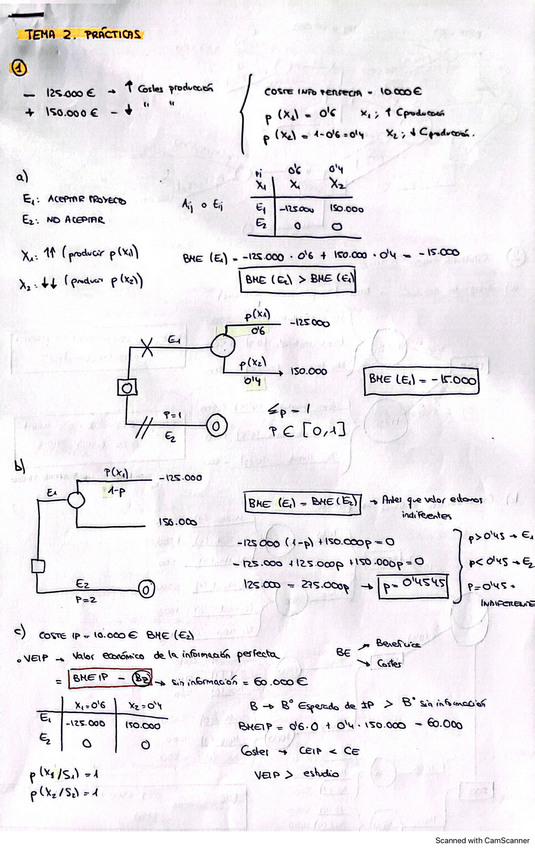 TEMA 2. PRÁCTICAS
①
- 125.000 € → ↑ Costes producción
+ 150.000 € - ↓ " "
COSTE INFO PERFECTA = 10.000 €
p (X₁) = 0'6 X₁ ; ↑ Cproducción
p (X₂) = 1-0'6 = 0'4 X₂ ; ↓ Cproducción.
a)
E₁: ACEPTAR PROYECTO
E₂: NO ACEPTAR
X₁: ↑↑ (producir p(X₁)
X₂: ↓↓ (producir p(X₂))
Aij o Eij
0'6 0'4
X₁ X₂
E₁ -125.000 150.000
E₂ 0 0
BME (E₁) = -125.000 · 0'6 + 150.000 · 0'4 = -15.000
BME (E₂) > BME (E₁)
E₁
p(X₁)
0'6
-125.000
p(X₂)
0'4
150.000
P=1
E₂
0
BME (E₁) = -15.000
Σp = 1
P ∈ [0,1]
b)
E₁
P(X₁)
1-p
-125.000
150.000
E₂
P=2
0
BME (E₁) = BME (E₂) → Antes que valor estamos
indiferentes
-125.000 (1-p) + 150.000p = 0
-125.000 + 125.000p + 150.000p = 0
125.000 = 275.000p → p = 0'4545
p > 0'45 → E₁
p < 0'45 → E₂
P = 0'45 →
INDIFERENTE
c) COSTE IP = 10.000 € BME (E₂)
• VEIP → Valor económico de la información perfecta
= BMEIP - B₂ → sin información = 60.000 €
BE → Beneficios
→ Costes
X₁=0'6 X₂=0'4
E₁ -125.000 150.000
E₂ 0 0
B → Bº Esperado de IP > Bº sin información
BMEIP = 0'6·0 + 0'4·150.000 = 60.000
Costes → CEIP < CE
VEIP > estudio
p(X₁/S₁) = 1
p(X₂/S₂) = 1
Scanned with CamScanner